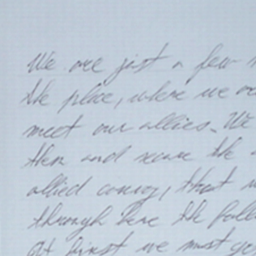 We are just a few
the place, where we
meet our allies. We
then and secure the
allied convoy, that
through here the
At first we must